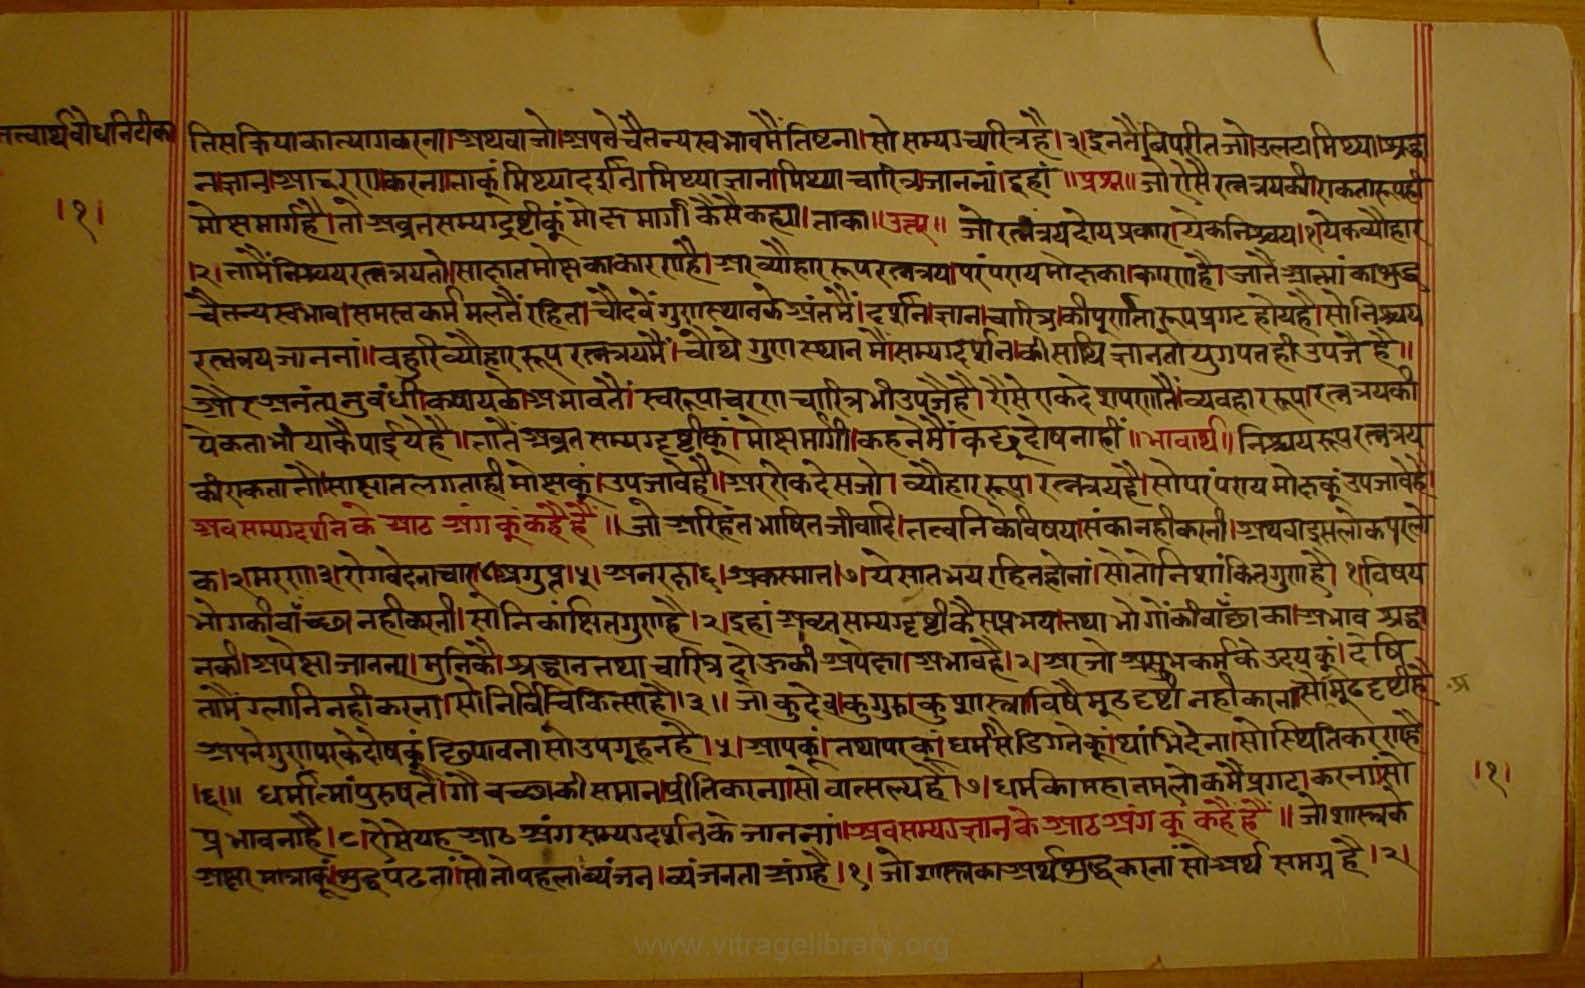 तत्वार्थबोधनिटीका
तिसक्रियाकात्यागकरना।अथवाजो।अपवेचैतन्यस्वभावमैंतिष्टना।सोसम्यग्चारित्रहै।३।इनतैंविपरीतजो।उलटामिथ्याश्रद्धा
नज्ञान।आचरणकरना।ताकूंमिथ्यादर्शन।मिथ्याज्ञान।मिथ्याचारित्र।जाननां।इहां॥प्रश्न॥जोऐसैरत्नत्रयकीएकतारूपही
।१।
मोक्षमार्गहै।तोअव्रतसम्यग्दृष्टीकूंमोक्षमार्गीकैसैकह्या।ताका॥उत्तर॥जोरत्नत्रयदोयप्रकार।येकनिश्चय।१।येकव्यौहार
।२।तामैंनिश्चयरत्नत्रयतो।साक्षातमोक्षकाकारणहै।अरव्यौहाररूपरत्नत्रय।परंपरायमोक्षका।कारणहै।जातैआत्मांकाशुद्ध
चैतन्यस्वभाव।समस्तकर्ममलतैंरहित।चौदवेंगुणस्थानकेअंतमैं।दर्शन।ज्ञान।चारित्र।कीपूर्णतारूपप्रगटहोयहै।सोनिश्चय
रत्नत्रयजाननां॥वहुरिव्यौहाररूपरत्नत्रयमैं।चौथेगुणस्थानमैं।सम्यग्दर्शन।कीसाथिज्ञानतोयुगपतहीउपजैहै॥
औरअनंतानुबंधी।कषायके।अभावतैं।स्वरूपाचरणचारित्रभीउपजैहै।ऐसेएकदेशपणातैं।व्यवहाररूप।रत्नत्रयकी
येकताभीयाकैपाईयेहै॥तातैंअव्रतसम्यग्दृष्टीकूं।मोक्षमार्गी।कहनेमैं।कछूदोषनाहीं॥भावार्थ॥निश्चयरूपरत्नत्रय
कीएकतातौ।साक्षातलगताहीमोक्षकूं।उपजावेहै।अरऐकदेसजो।व्यौहाररूप।रत्नत्रयहै।सोपरंपरायमोक्षकूंउपजावेहै।
अबसम्यग्दर्शनकेआठअंगकूंकहैहैं॥जोअरिहंतभाषितजीवादि।तत्वनिकेविषय।संकानहीकरनी।अथवाइसलोकपरलो
क।२।मरण।३।रोगवेदनाचार।४।अगुप्त।५।अनरक्षा।६।अकस्मात।७।येसातभयरहितहोनां।सोतोनिशांकितगुणहै।१।विषय
भोगकीवाँच्छानहीकरनी।सोनिकांक्षितगुणहै।२।इहांअव्रतसम्यग्दृष्टीकैसप्तभय।तथाभोगोंकीवाँछाका।अभावश्रद्धा
नकी।अपेक्षाजानना।मुनिकौ।श्रद्धानतथाचारित्रदोऊकीअपेक्षा।अभावहै।२।अरजोअसुभकर्मकेउदयकूं।देषि
तामैंग्लानिनहीकरना।सोनिर्विचिकित्साहै।३॥जोकुदेव।कुगुरु।कुशास्त्र।विषैमूढदृष्टीनहीकरना।सोमूढदृष्टीहै
प्र
अपनेगुणपरकेदोषकूंछिपावनासोउपगूहनहै।५।आपकूं।तथापरकूं।धर्मसैडिगतेकूं।थांभिदेना।सोस्थितिकरणहै
।६॥धर्मात्मांपुरुषतैं।गौवच्छाकीसमान।प्रीतिकरना।सोवात्सल्यहै।७।धर्मकामहातमलोकमैप्रगट।करनां।सो
।१।
प्रभावनाहै।८।ऐसेयहआठअंगसम्यग्दर्शनकेजाननां॥अबसम्यग्ज्ञानकेआठअंगकूंकहैहैं॥जोशास्त्रके
अक्षरमात्राकूं।शुद्धपढनां।सोतोपहलाव्यंजन।व्यंजनताअंगहै।१।जोशास्त्रकाअर्थशुद्धकरनांसोअर्थसमग्रहै।२।
www.vitragelibrary.org